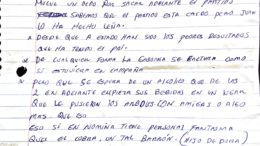 MUEVE UN DEDO POR SACAR ADELANTE EL PARTIDO
SABEMOS QUE EL PARTIDO ESTA CAIDO PERO JUAN
LO HA HECHO LEÑA.
DESDE QUE A ESTADO HAN SIDO LOS PEORES RESULTADOS
QUE HA TENIDO EL
DE CUALQUIER FORMA LA GASOLINA SE FACTURA COMO
SI ESTUVIERA EN CAMPAÑA
PERO QUE SE ESPERA DE UN ALCOHOL QUE DE LOS
2 EN ADELANTE EMPIEZA SUS BEBIDAS EN UN
QUE LE PUSIERON LOS CON AMIGAS O ALGO
MAS. QUE
ESO SI EN NOMINA TIENE PERSONAL FANTASMA
QUE EL COBRA. UN TAL (HIJO DE